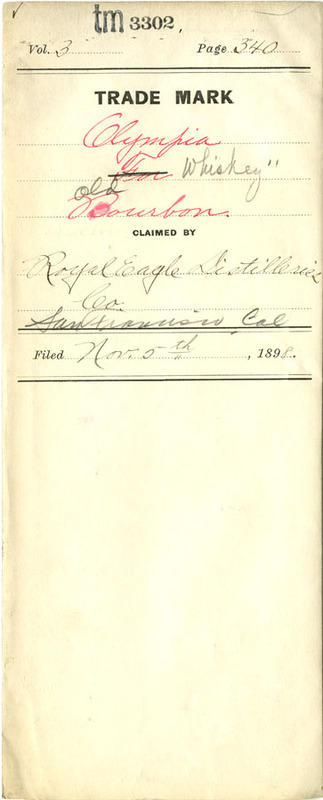 tm 3302,
Vol. 3 Page 340
TRADE MARK
Olympia
For Whiskey"
old
Bourbon.
CLAIMED BY
Royal Eagle Distilleries
Co.
San Francisco Cal
Filed Nov. 5th, 1898.